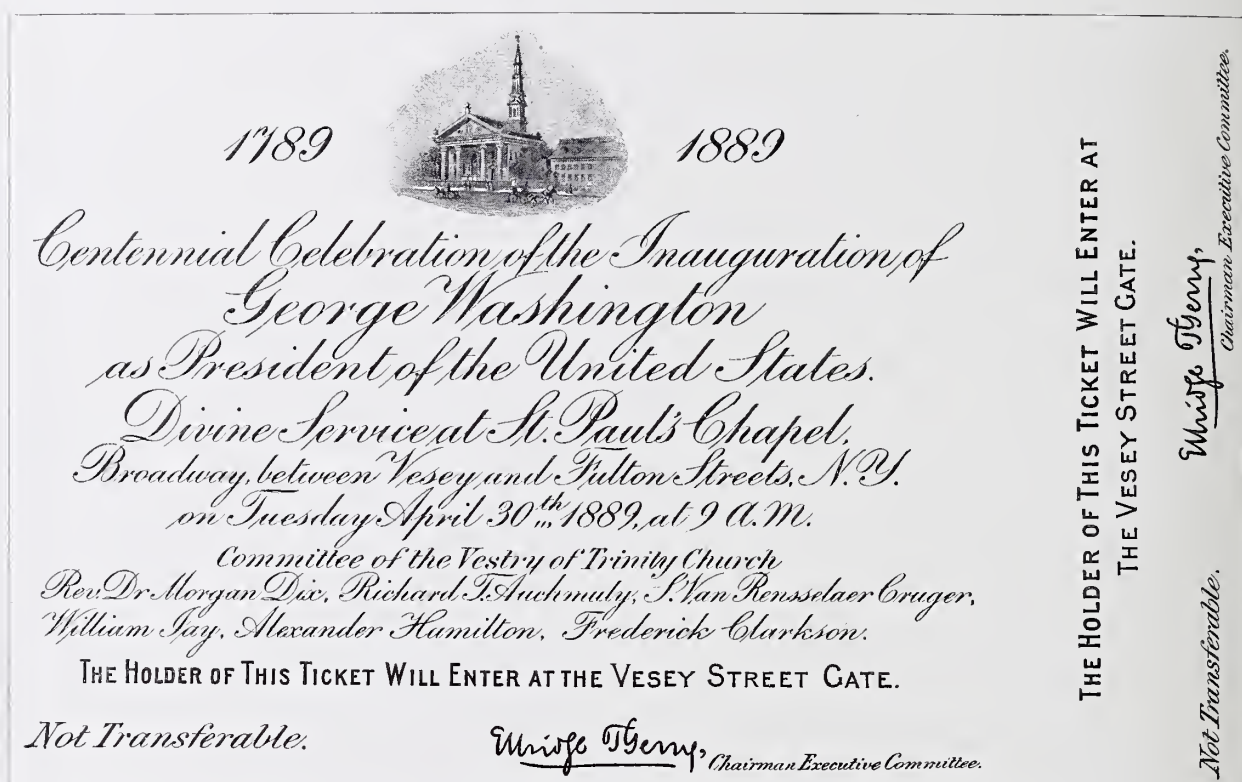 1789 1889
Centennial Celebration of the Inauguration of
George Washington
as President of the United States.
Divine Service at St. Paul's Chapel.
Broadway, between Vesey and Fulton Streets, N.Y.
on Tuesday April 30th 1889, at 9 A.M.
Committee of the Vestry of Trinity Church
Rev. Dr Morgan Dix, Richard T. Auchmuty, S. Van Rensselaer Cruger,
William Jay, Alexander Hamilton, Frederick Clarkson.
THE HOLDER OF THIS TICKET WILL ENTER AT THE VESEY STREET GATE.
Not Transferable.
Elbridge T Gerry, Chairman Executive Committee.
THE HOLDER OF THIS TICKET WILL ENTER AT
THE VESEY STREET GATE.
Not Transferable.
Elbridge T Gerry,
Chairman Executive Committee.